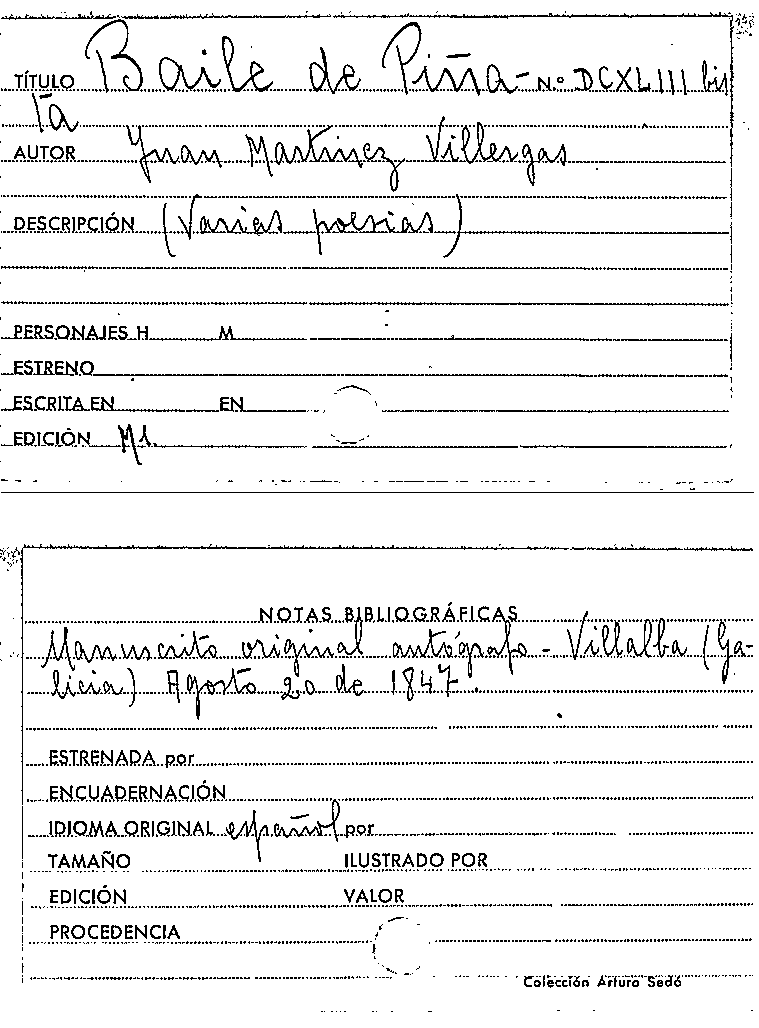 TÍTULO Baile de Piña - N.º DCXLIII bis
AUTOR Juan Martinez Villergas
DESCRIPCIÓN (Varias poesias)
PERSONAJES H M
ESTRENO
ESCRITA EN EN
EDICIÓN Ms.
NOTAS BIBLIOGRÁFICAS
Manuscrito original autógrafo - Villalba (Ga-
licia) Agosto 20 de 1847.
ESTRENADA por
ENCUADERNACIÓN
IDIOMA ORIGINAL español por
TAMAÑO ILUSTRADO POR
EDICIÓN VALOR
PROCEDENCIA
Colección Arturo Sedó